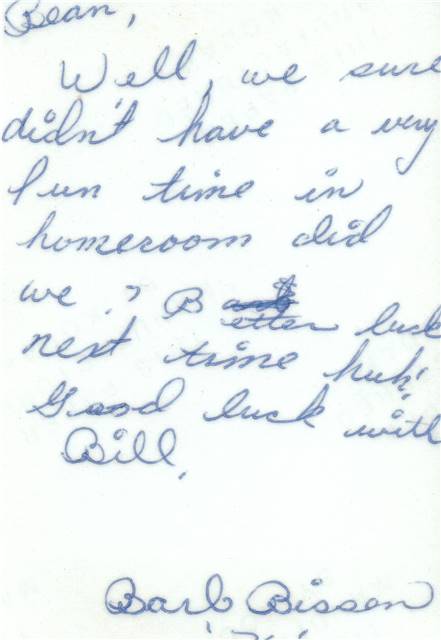 Bean,
Well, we sure
didn't have a very
fun time in
homeroom did
we? Better luck
next time huh!
Good luck with
Bill.
Barb Bisson